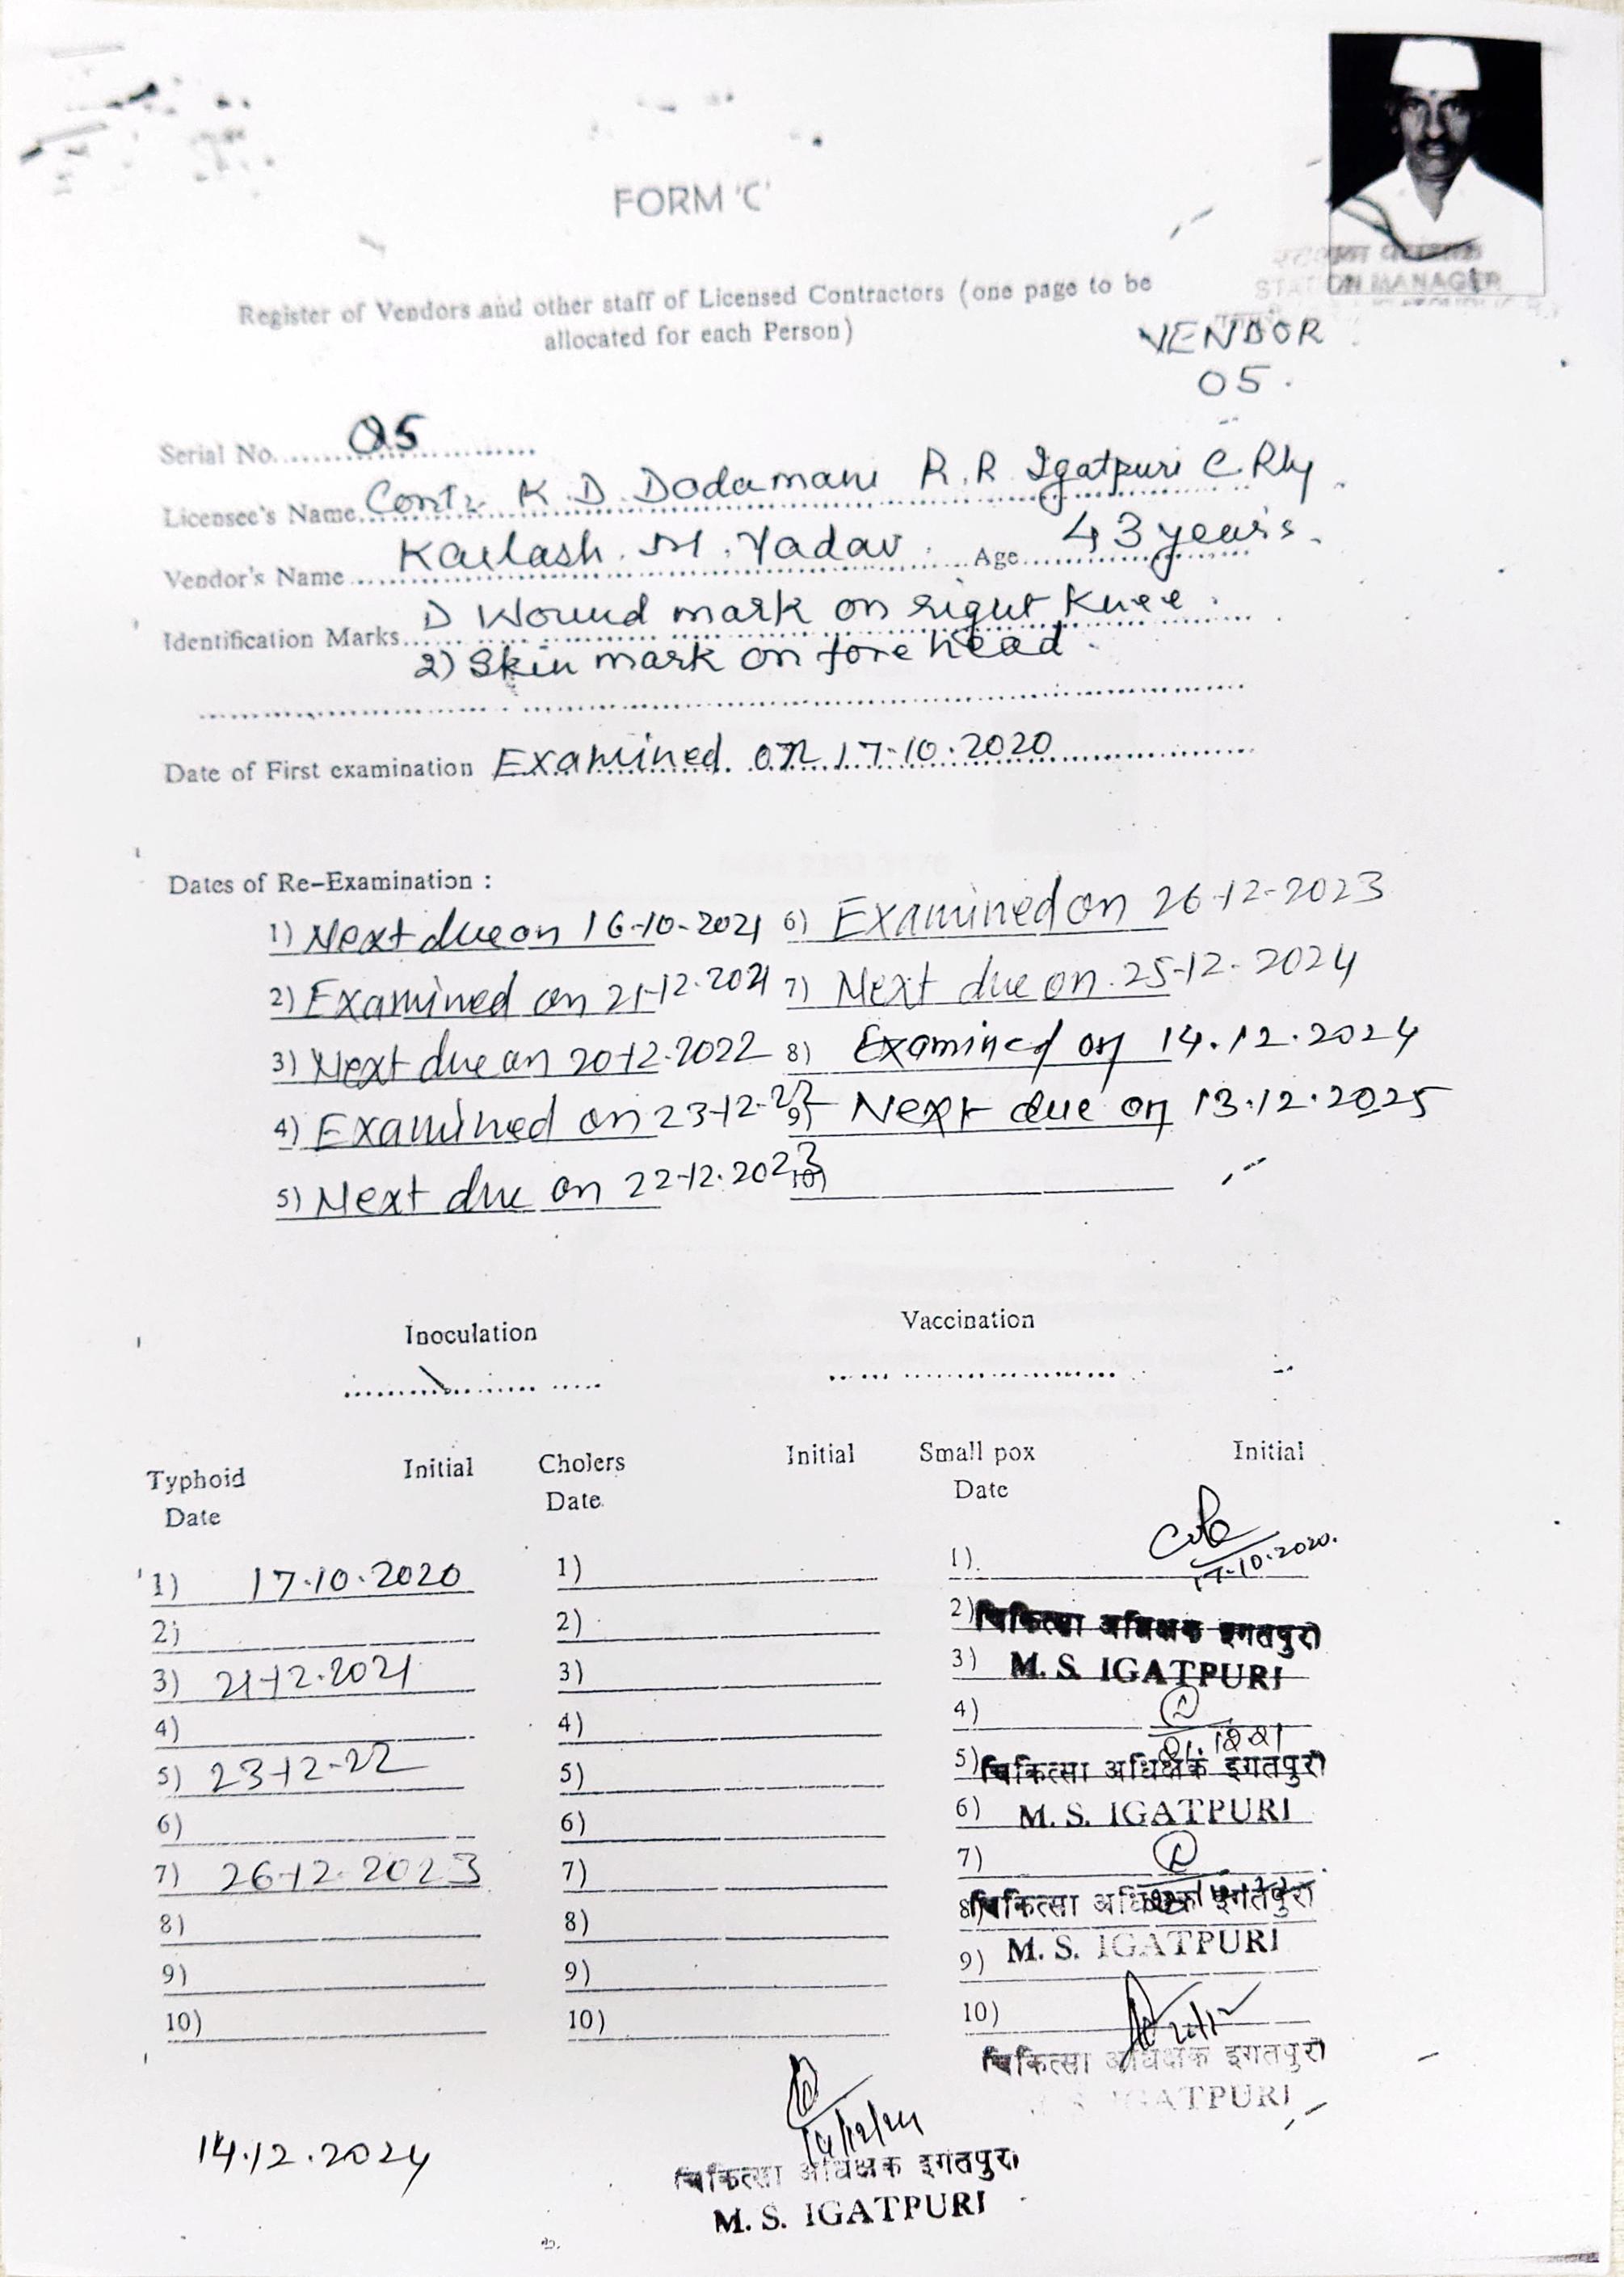 FORM 'C'
STATION MANAGER
Register of Vendors and other staff of Licensed Contractors (one page to be
allocated for each Person)
VENDOR
05.
Serial No. 05
Licensee's Name Contr K.D. Dodamani R.R. Igatpuri C.Rly
Vendor's Name Kailash. M. Yadav. Age 43 years.
Identification Marks 1) Wound mark on right Knee.
2) Skin mark on fore head.
Date of First examination Examined on 17.10.2020
Dates of Re-Examination :
1) Next due on 16-10-2021 6) Examined on 26-12-2023
2) Examined on 21-12-2021 7) Next due on 25-12-2024
3) Next due on 20-12-2022 8) Examined on 14.12.2024
4) Examined on 23-12-22 9) Next due on 13.12.2025
5) Next due on 22-12-2023 10)
Inoculation Vaccination
Typhoid Initial Cholers Initial Small pox Initial
Date Date Date
1) 17.10.2020 1) 1) 17.10.2020.
2) 2) 2) चिकित्सा अधिक्षक इगतपुरी
3) 21-12-2021 3) 3) M. S. IGATPURI
4) 4) 4)
5) 23-12-22 5) 5) चिकित्सा अधिक्षक इगतपुरी
6) 6) 6) M. S. IGATPURI
7) 26-12-2023 7) 7)
8) 8) 8) चिकित्सा अधिक्षक इगतपुरी
9) 9) 9) M. S. IGATPURI
10) 10) 10)
चिकित्सा अधिक्षक इगतपुरी
M. S. IGATPURI
14.12.2024 14/12/24
चिकित्सा अधिक्षक इगतपुरी
M. S. IGATPURI